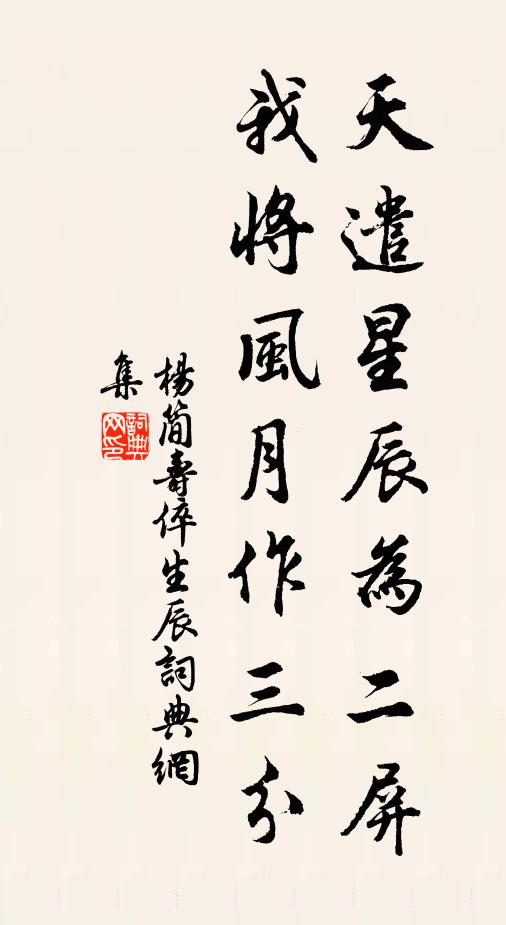 天遣星辰為二屏
我將風月作三分
楊簡壽倅生辰詞典網
集
詞典網印